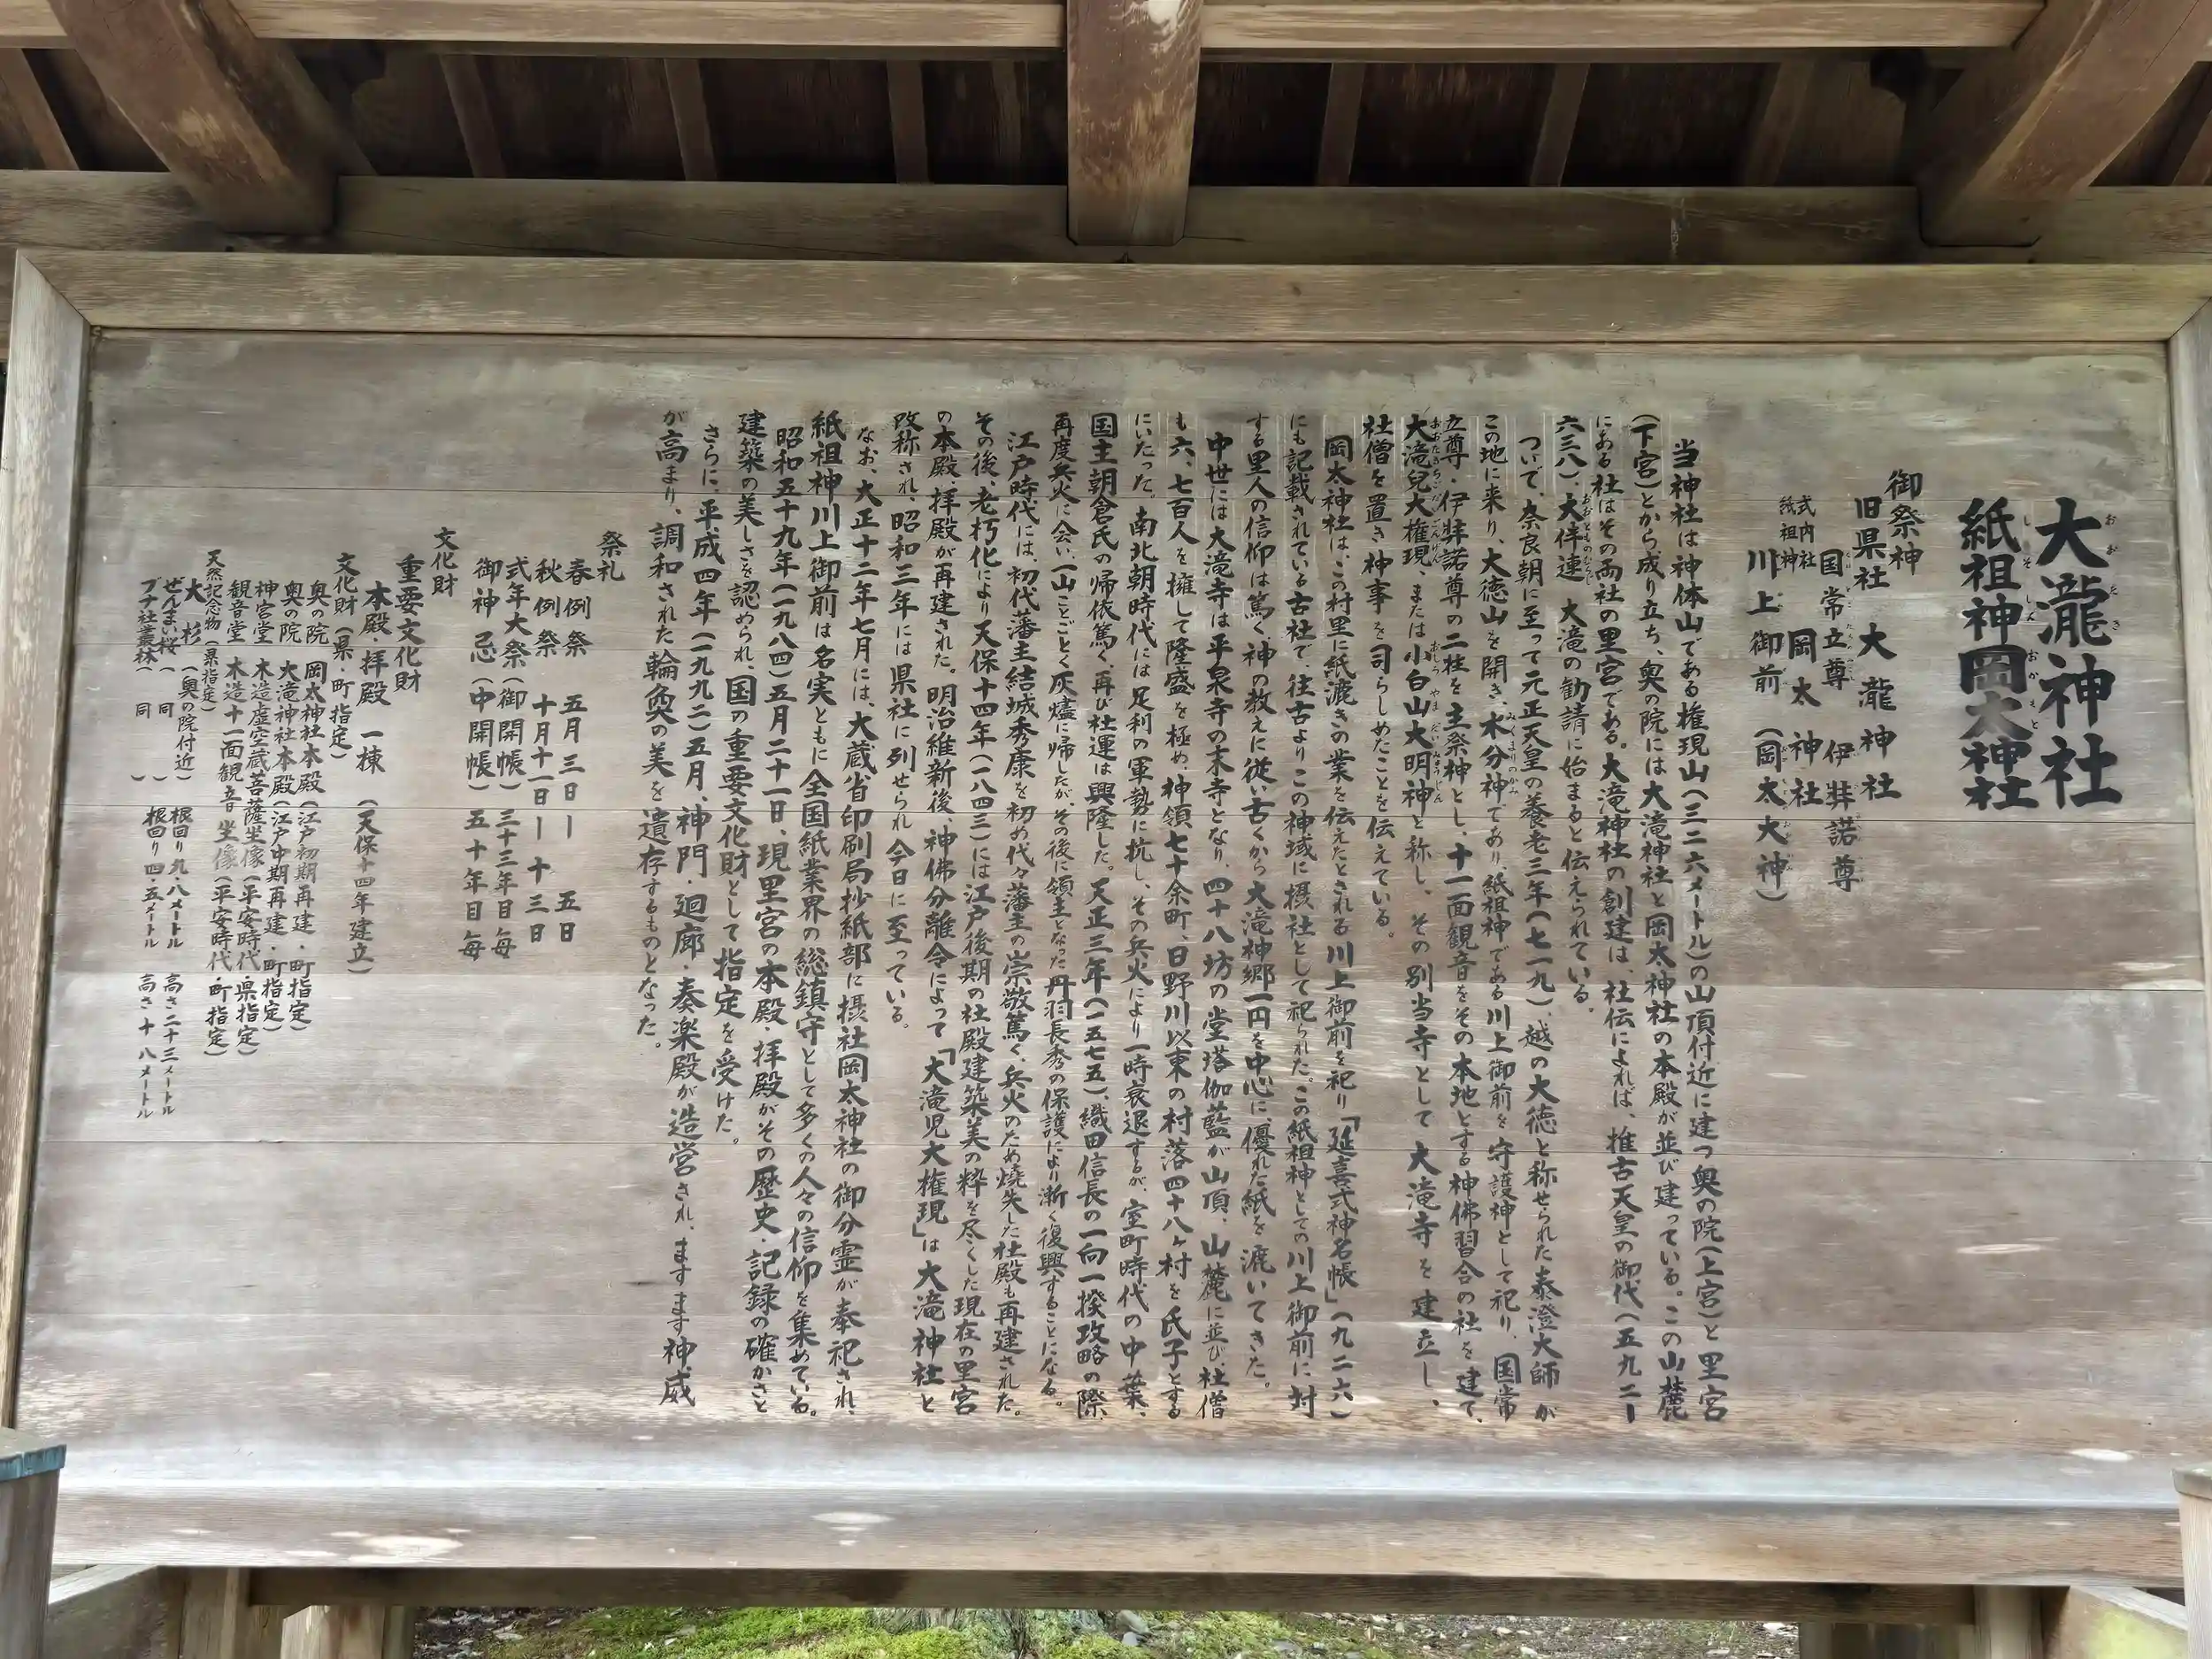 大瀧神社
紙祖神岡太神社
御祭神
旧県社 大瀧神社
国常立尊 伊弉諾尊
式内社 紙祖神 岡太神社
川上御前(岡太大神)
当神社は神体山である権現山(三二六メートル)の山頂付近に建つ奥の院(上宮)と里宮
(下宮)とから成り立ち、奥の院には大滝神社と岡太神社の本殿が並び建っている。この山麓
にある社はその両社の里宮である。大滝神社の創建は、社伝によれば、推古天皇の御代(五九二ー
六三八)、大伴連 大滝の勧請に始まると伝えられている。
ついで、奈良朝に至って元正天皇の養老三年(七一九)、越の大徳と称せられた泰澄大師が
この地に来り、大徳山を開き、水分神であり紙祖神である川上御前を守護神として祀り、国常
立尊・伊弉諾尊の二柱を主祭神とし、十一面観音をその本地とする神佛習合の社を建て、
大滝兒大権現、または小白山大明神と称し、その別当寺として大滝寺を建立し、
社僧を置き神事を司らしめたことを伝えている。
岡太神社は、この村里に紙漉きの業を伝えたとされる川上御前を祀り「延喜式神名帳」(九二六)
にも記載されている古社で、往古よりこの神域に摂社として祀られた。この紙祖神としての川上御前に対
する里人の信仰は篤く、神の教えに従い古くから大滝神郷一円を中心に、優れた紙を漉いてきた。
中世には大滝寺は平泉寺の末寺となり、四十八坊の堂塔伽藍が山頂、山麓に並び、社僧
も六、七百人を擁して隆盛を極め、神領七十余町、日野川以東の村落四十八ヶ村を氏子とする
にいたった。南北朝時代には足利の軍勢に抗し、その兵火により一時衰退するが、室町時代の中葉、
国主朝倉氏の帰依篤く、再び社運は興隆した。天正三年(一五七五)、織田信長の一向一揆攻略の際、
再度兵火に会い、一山ことごとく灰燼に帰したが、その後に領主となった丹羽長秀の保護により漸く復興することになる。
江戸時代には、初代藩主結城秀康を初め代々藩主の崇敬篤く、兵火のため焼失した社殿も再建された。
その後、老朽化により天保十四年(一八四三)には江戸後期の社殿建築美の粋を尽くした現在の里宮
の本殿、拝殿が再建された。明治維新後、神佛分離令によって「大滝児大権現」は大滝神社と
改称され、昭和三年には県社に列せられ今日に至っている。
なお、大正十二年七月には、大蔵省印刷局抄紙部に摂社岡太神社の御分霊が奉祀され、
紙祖神川上御前は名実ともに全国紙業界の総鎮守として多くの人々の信仰を集めている。
昭和五十九年(一九八四)五月二十一日、現里宮の本殿・拝殿がその歴史・記録の確かさと
建築の美しさを認められ、国の重要文化財として指定を受けた。
さらに、平成四年(一九九二)五月、神門・廻廊・奏楽殿が造営され、ますます神威
が高まり、調和された輪奐の美を遺存するものとなった。
祭礼
春例祭 五月三日ー五日
秋例祭 十月十一日ー十三日
式年大祭(御開帳)三十三年目毎
御神忌(中開帳)五十年目毎
文化財
重要文化財
本殿・拝殿 一棟 (天保十四年建立)
文化財(県・町指定)
奥の院 岡太神社本殿(江戸初期再建・町指定)
奥の院 大滝神社本殿(江戸中期再建・町指定)
神宮堂 木造虚空蔵菩薩坐像(平安時代・県指定)
観音堂 木造十一面観音坐像(平安時代・町指定)
天然記念物(県指定)
大杉(奥の院付近) 根回り九・八メートル 高さ二十三メートル
ぜんまい桜( 同 ) 根回り四・五メートル 高さ十八メートル
ブナ社叢林( 同 )